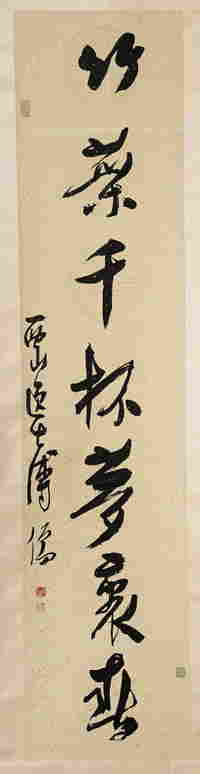 竹葉千杯夢裏春
西山逸士溥儒